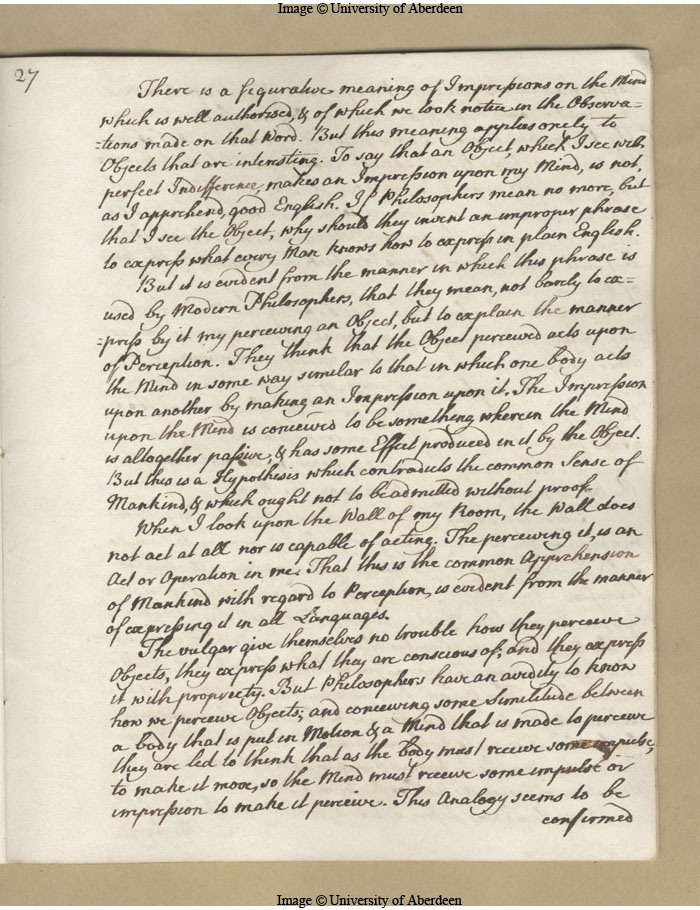 Image © University of Aberdeen
27
There is a figurative meaning of Impressions on the Mind
which is well authorised, & of which we took notice in the Observa=
=tions made on that Word. But this meaning applies onely to
Objects that are interesting. To say that an Object, which I see with
perfect Indifference, makes an Impression upon my Mind, is not,
as I apprehend, good English. If Philosophers mean no more, but
that I see the Object, why should they invent an improper phrase
to express what every Man knows how to express in plain English.
But it is evident from the manner in which this phrase is
used by Modern Philosophers, that they mean, not barely to ex=
=press by it my perceiving an Object, but to explain the manner
of Perception. They think that the Object perceived acts upon
the Mind in some way similar to that in which one body acts
upon another by making an Impression upon it. The Impression
upon the Mind is conceived to be something wherein the Mind
is altogether passive, & has some Effect produced in it by the Object.
But this is a Hypothesis which contradicts the common Sense of
Mankind, & which ought not to be admitted without proof.
When I look upon the Wall of my Room, the Wall does
not act at all nor is capable of acting. The perceiving it, is an
Act or Operation in me. That this is the common Apprehension
of Mankind with regard to Perception, is evident from the manner
of expressing it in all Languages.
The vulgar give themselves no trouble how they perceive
Objects, they express what they are conscious of, and they express
it with propriety. But Philosophers have an avidity to know
how we perceive Objects; and conceiving some Similitude between
a body that is put in Motion & a Mind that is made to perceive
they are led to think that as the body must receive some impulse,
to make it move, so the Mind must receive some impulse or
impression to make it perceive. This Analogy seems to be
confirmed
Image © University of Aberdeen